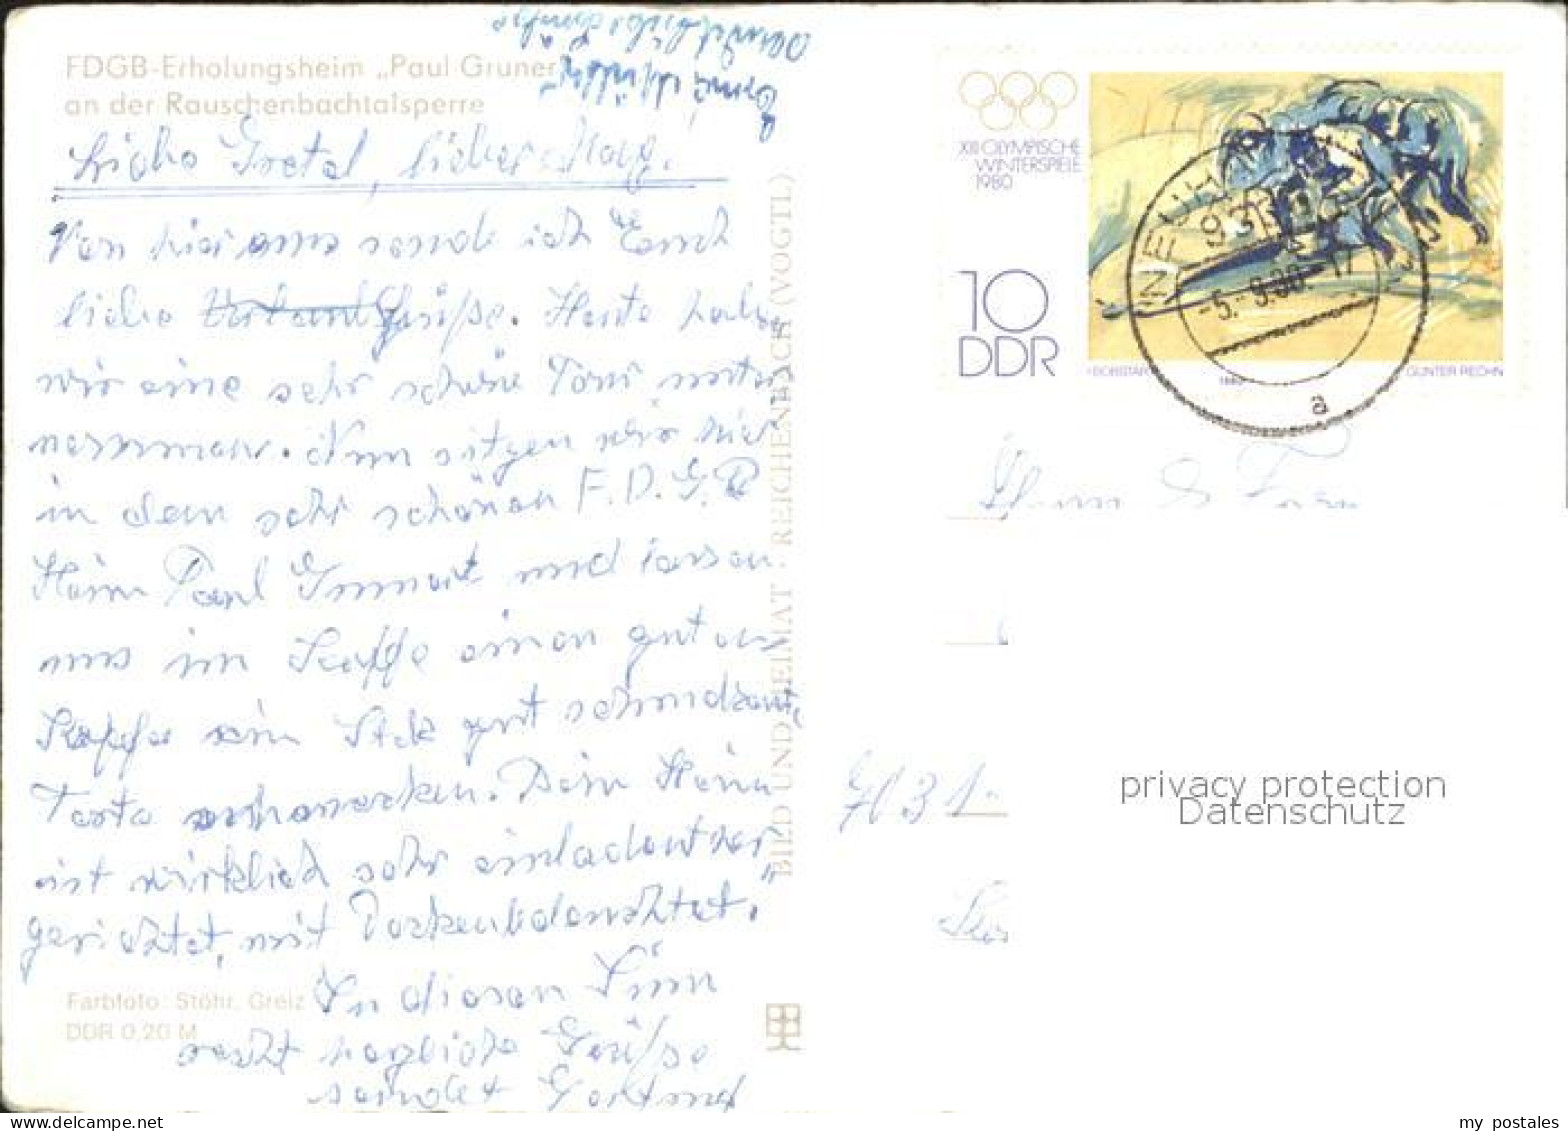 FDGB-Erholungsheim „Paul Gruner
an der Rauschenbachtalsperre
Liebe Gretel, lieber
Von hier aus sende ich Euch
liebe Grüße. Heute haben
wir eine sehr schöne Tour unter
nommen. Nun sitzen wir hier
in dem sehr schönen F.D.G.B
Heim Paul und lassen
uns im Kaffe einen guten
Kaffe ein Stck gut schmeckente
Torte schmecken. Dein Heim
ist wirklich sehr einladent her
gerichtet, mit
In diesen Sinn
recht herzliche Grüße
sendet Gertrud
Farbfoto: Stöhr, Greiz
DDR 0,20 M
BILD UND HEIMAT REICHENBACH (VOGTL)
XIII OLYMPISCHE
WINTERSPIELE
1980
10
DDR
BOBSTART
1980
GÜNTER RECHN
NEUH
933
-5.-9.80-17
a
Frau
703
privacy protection
Datenschutz
my postales